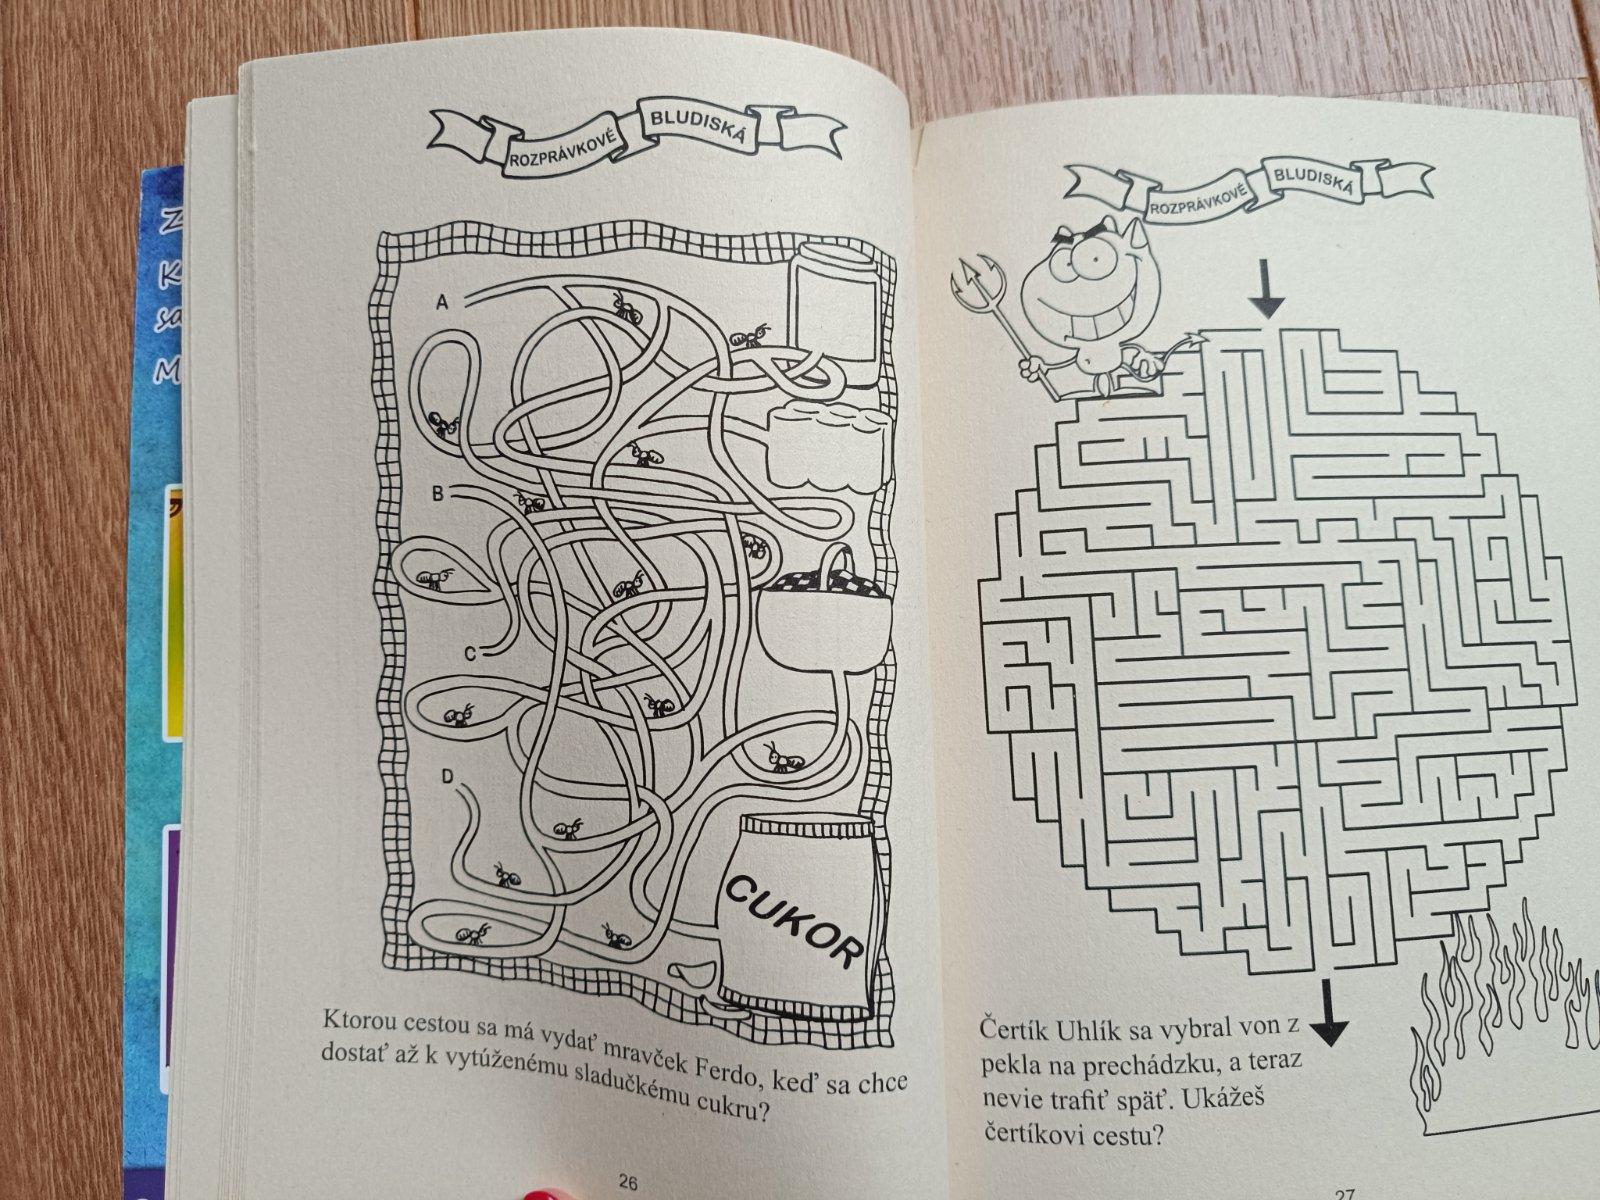 Z
K
sa
M
ROZPRÁVKOVÉ BLUDISKÁ
A
B
C
D
CUKOR
Ktorou cestou sa má vydať mravček Ferdo, keď sa chce
dostať až k vytúženému sladučkému cukru?
26
ROZPRÁVKOVÉ BLUDISKÁ
Čertík Uhlík sa vybral von z
pekla na prechádzku, a teraz
nevie trafiť späť. Ukážeš
čertíkovi cestu?
27